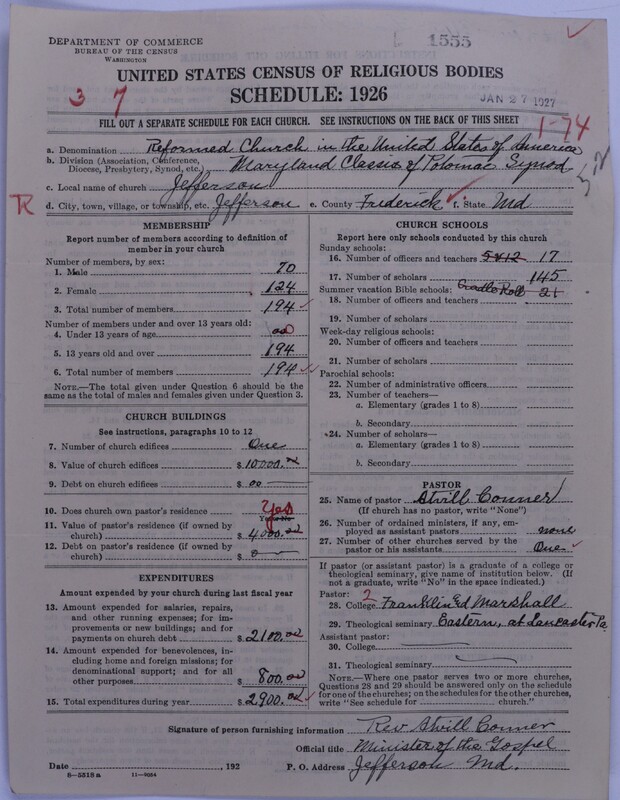 DEPARTMENT OF COMMERCE
BUREAU OF THE CENSUS
WASHINGTON
1555
UNITED STATES CENSUS OF RELIGIOUS BODIES
SCHEDULE: 1926
3 7
JAN 27 1927
FILL OUT A SEPARATE SCHEDULE FOR EACH CHURCH. SEE INSTRUCTIONS ON THE BACK OF THIS SHEET
1-74
a. Denomination Reformed Church in the United States of America
b. Division (Association, Conference, Diocese, Presbytery, Synod, etc.) Maryland Classis of Potomac Synod
c. Local name of church Jefferson
R d. City, town, village, or township, etc. Jefferson e. County Frederick f. State Md
MEMBERSHIP
Report number of members according to definition of
member in your church
Number of members, by sex:
1. Male 70
2. Female 124
3. Total number of members 194
Number of members under and over 13 years old:
4. Under 13 years of age 00
5. 13 years old and over 194
6. Total number of members 194
NOTE.—The total given under Question 6 should be
same as the total of males and females given under Question 3.
CHURCH BUILDINGS
See instructions, paragraphs 10 to 12
7. Number of church edifices One
8. Value of church edifices $10000.00
9. Debt on church edifices $00
10. Does church own pastor's residence Yes
Yes or No
11. Value of pastor's residence (if owned by
church) $4000.00
12. Debt on pastor's residence (if owned by
church) $0
EXPENDITURES
Amount expended by your church during last fiscal year
13. Amount expended for salaries, repairs,
and other running expenses; for im-
provements or new buildings; and for
payments on church debt $2100.00
14. Amount expended for benevolences,
including home and foreign missions; for
denominational support; and for all
other purposes $800.00
15. Total expenditures during year $2900.00
CHURCH SCHOOLS
Report here only schools conducted by this church
Sunday schools:
16. Number of officers and teachers 5x12 17
17. Number of scholars 145
Summer vacation Bible schools: Cradle Roll 21
18. Number of officers and teachers
19. Number of scholars
Week-day religious schools:
20. Number of officers and teachers
21. Number of scholars
Parochial schools:
22. Number of administrative officers
23. Number of teachers—
a. Elementary (grades 1 to 8)
b. Secondary
24. Number of scholars—
a. Elementary (grades 1 to 8)
b. Secondary
PASTOR
25. Name of pastor Atvill Conner
(If church has no pastor, write "None")
26. Number of ordained ministers, if any, em-
ployed as assistant pastors none
27. Number of other churches served by the
pastor or his assistants One
If pastor (or assistant pastor) is a graduate of a college or
theological seminary, give name of institution below. (If
not a graduate, write "No" in the space indicated.)
Pastor: 2
28. College Franklin Ed Marshall
29. Theological seminary Eastern, at Lancaster Pa.
Assistant pastor:
30. College
31. Theological seminary
NOTE.—Where one pastor serves two or more churches,
Questions 28 and 29 should be answered only on the schedule
for one of the churches; on the schedules for the other churches,
write "See schedule for church."
Signature of person furnishing information Rev Atvill Conner
Official title Minister of the Gospel
Date , 192 P. O. Address Jefferson Md.
8—5318 a 11—9084